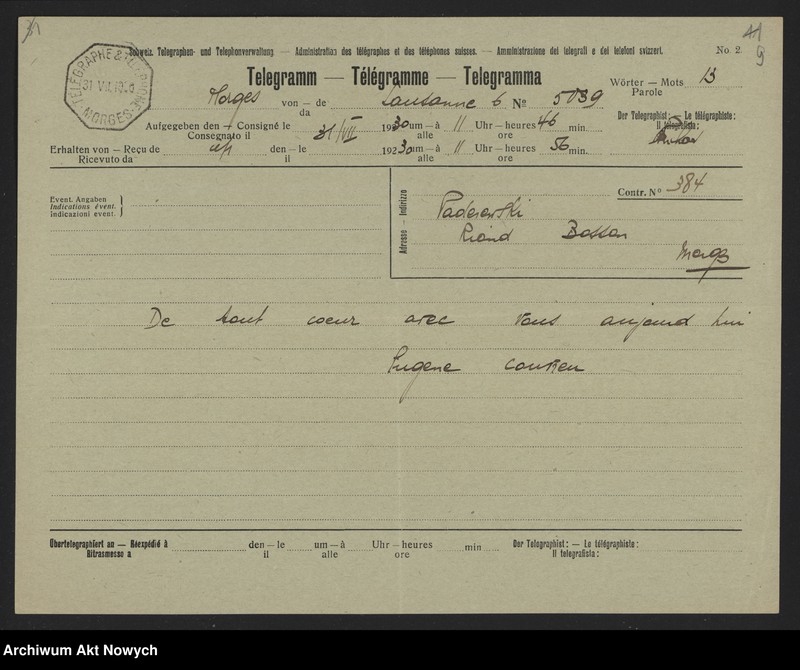 Schweiz. Telegraphen- und Telephonverwaltung. — Administration des télégraphes et des téléphones suisses. — Amministrazione dei telegrafi e dei telefoni svizzeri. No 2
41
9
TÉLÉGRAPHE & TÉLÉPHONE
31 VII.
MORGES
Telegramm — Télégramme — Telegramma
Wörter — Mots 13
Parole
Morges von — de Lausanne 6 No 5039
da
Aufgegeben den — Consigné le 31/VII 1930 um — à 11 Uhr — heures 46 min.
Consegnato il alle ore
Der Telegraphist: — Le télégraphiste:
Il telegrafista:
Erhalten von — Reçu de den — le 19230 um — à 11 Uhr — heures 56 min.
Ricevuto da il alle ore
Event. Angaben
Indications évent.
Indicazioni event.
Adresse — Indirizzo
Contr. No 384
Paderewski
Riond Bosson
Morges
De tout coeur avec vous aujourd hui
Eugene
Übertelegraphiert an — Réexpédié à den — le um — à Uhr — heures min Der Telegraphist: — Le télégraphiste:
Ritrasmesso a il alle ore Il telegrafista:
Archiwum Akt Nowych